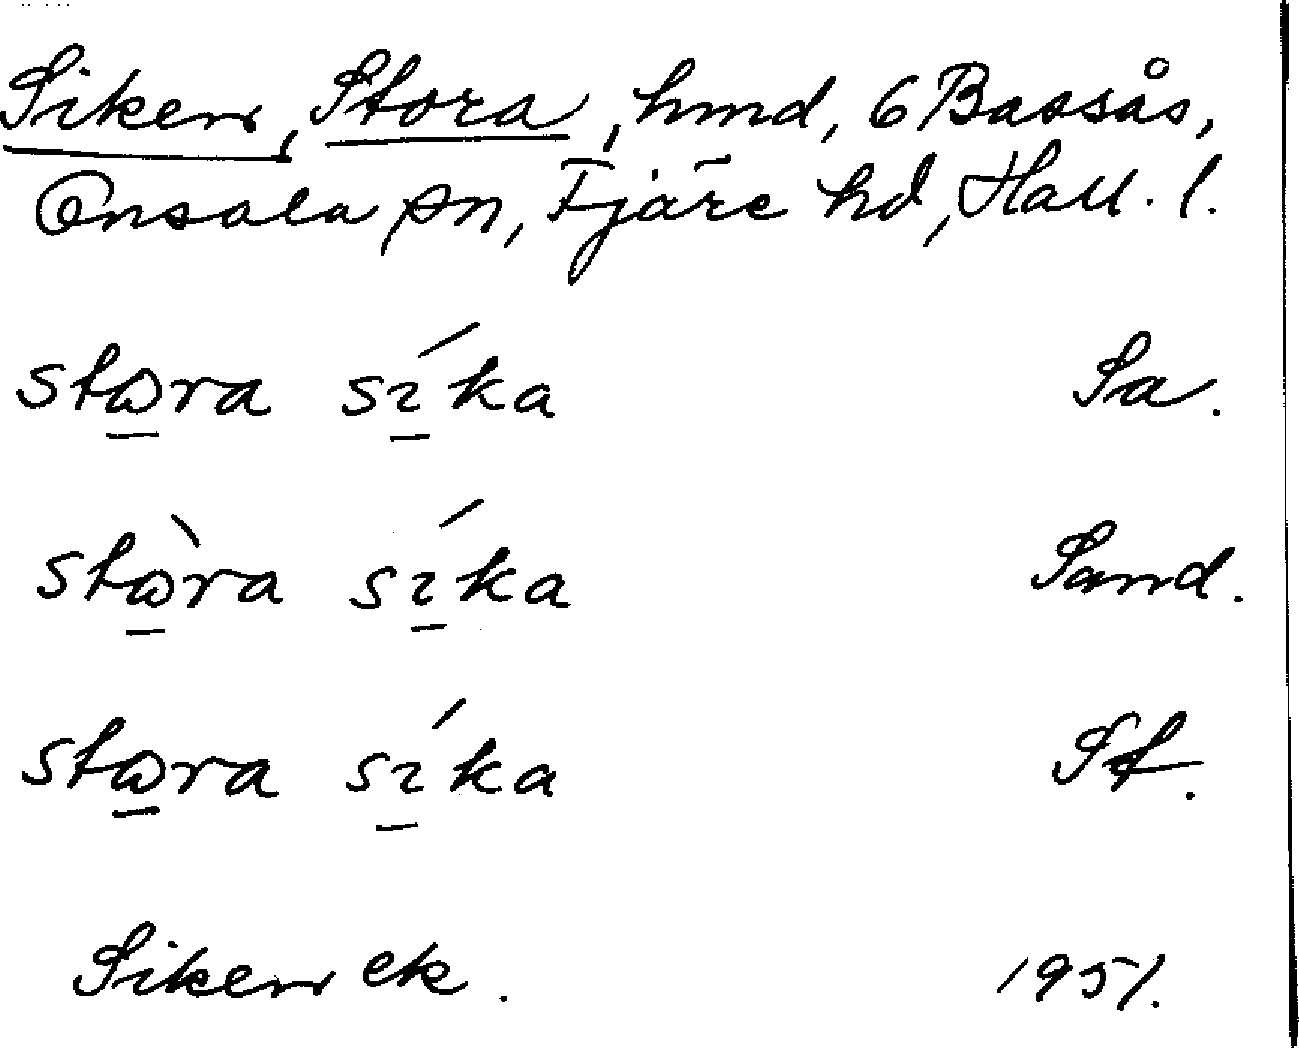 Siken, Stora, hmd, 6 Bassås,
Onsala sn, Fjäre hd, Hall. l.
stωra síka Sa.
stὼra síka Sand.
stωra síka St.
Siken ek. 1951.